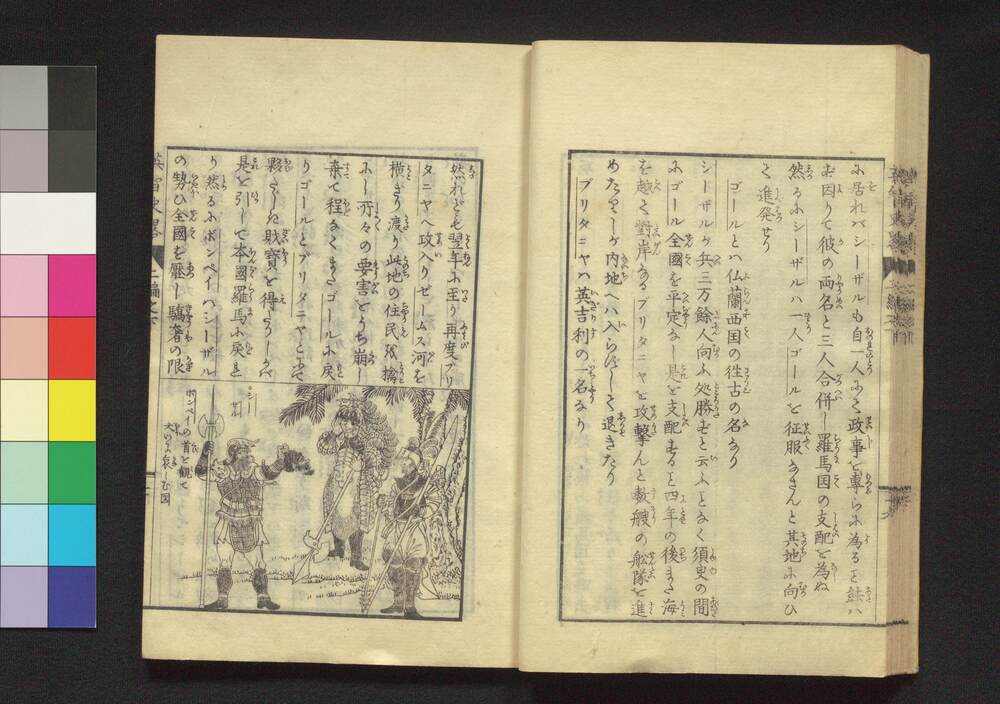 に居れバシーザルも自一人にて政事を專らに為るを能ハ
ず因りて彼の両名と三人合併し羅馬国の支配を為ぬ
然るにシーザルハ一人ゴールを征服なさんと其地に向ひ
て進発せり
ゴールとハ仏蘭西国の徃古の名なり
シーザルが兵三万餘人向ふ処勝ずと云ふことなく須臾の間
にゴール全國を平定なし是を支配すること四年の後また海
を越て對岸なるブリタニヤを攻撃んと数艘の舩隊を進
めたりしが内地へハ入らずして退きたり
ブリタニヤハ英吉利の一名なり
然れども翌年に至り再度ブリ
タニヤへ攻入りゼームス河を
横ぎり渡り此地の住民を擒
にし所々の要害をうち崩し
棄て程なくまたゴールに戻
りゴールとブリタニヤとにて
夥だしき財寳を得たりしかバ
是を引して本國羅馬に戻れ
り然るにポンペイハシーザル
の勢ひ全國を壓し驕奢の限
シー
ザル
ポンペイの首を観て
大いに哀しむ図